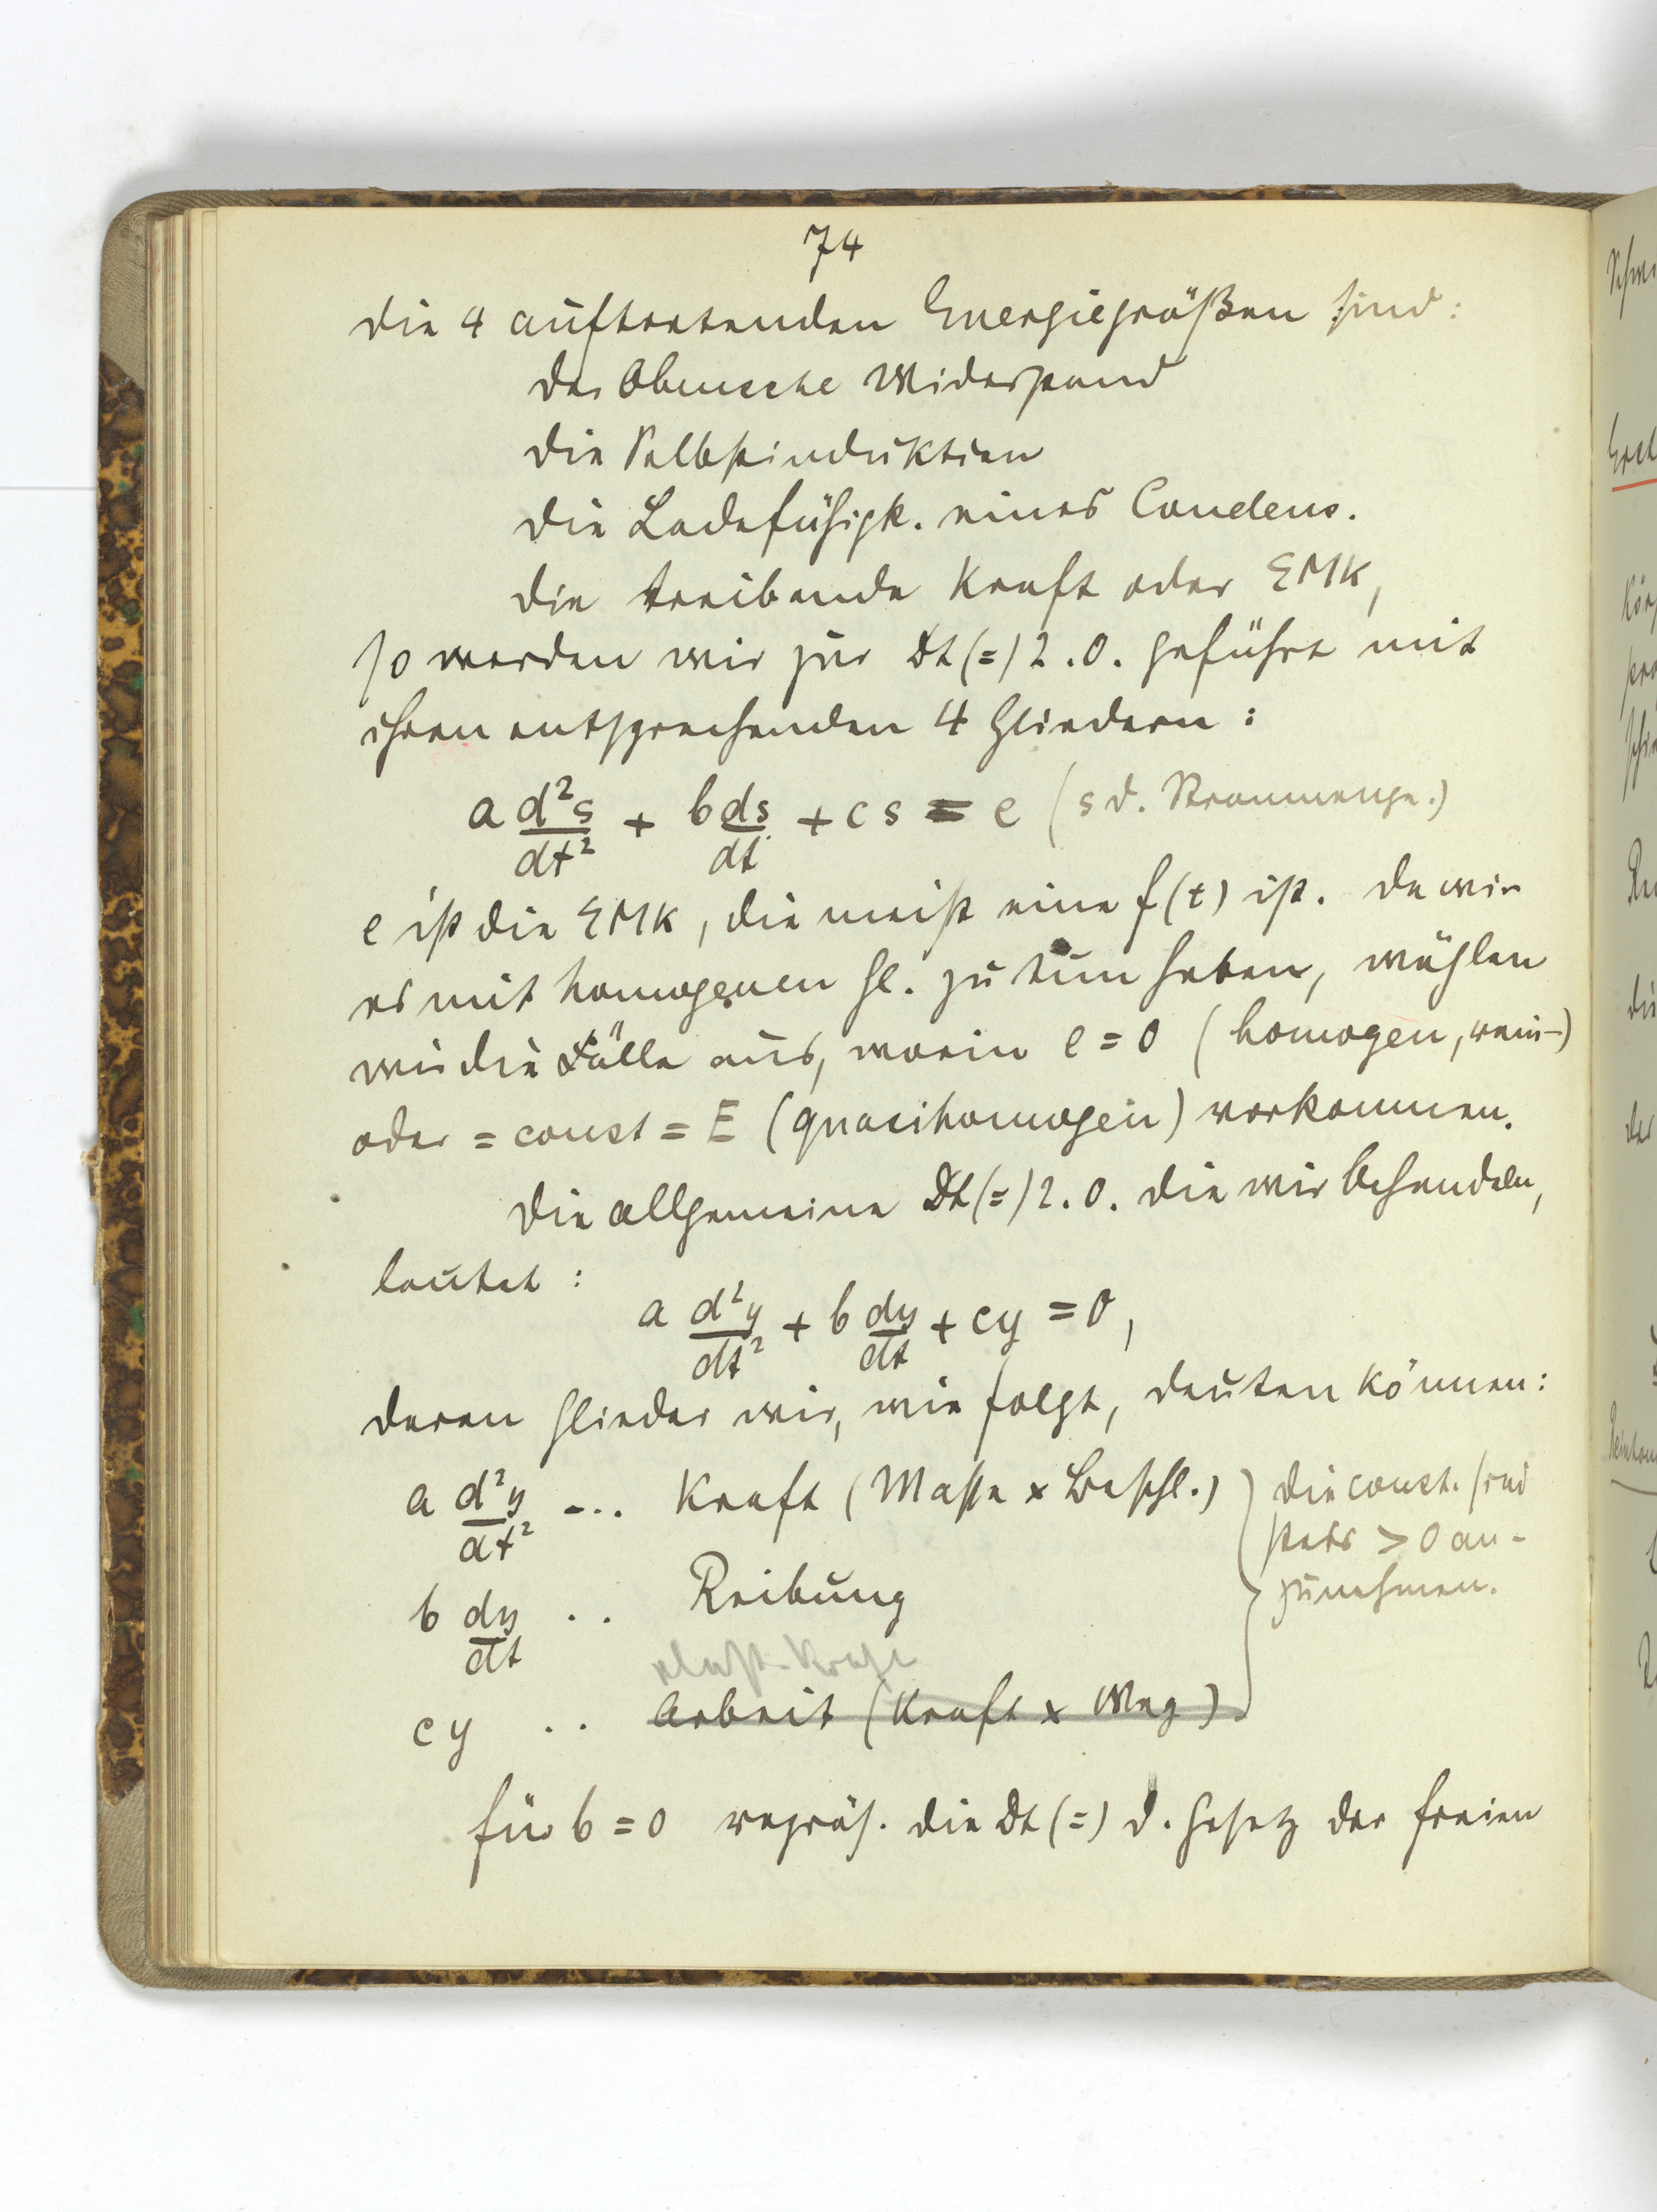 74
die 4 auftretenden Energiegrößen sind:
der Ohmsche Widerstand
die Selbstinduktion
die Ladefähigk. eines Condens.
die treibende Kraft oder EMK,
so werden wir zur Dt(=) 2. O. geführt mit
ihren entsprechenden 4 Gliedern:
a d²s/dt² + b ds/dt + cs = e (s d. Strommenge.)
e ist die EMK, die meist eine f(t) ist. Da wir
es mit homogenen Gl. zu tun haben, wählen
wir die Fälle aus, worin e = 0 (homogen, rein-)
oder = const = E (quasihomogen) vorkommen.
Die allgemeine Dt(=) 2. O. die wir behandeln,
lautet:
a d²y/dt² + b dy/dt + cy = 0,
deren Glieder wir, wie folgt, deuten können:
a d²y/dt² ... Kraft (Masse x Beschl.) die const. sind
stets > 0 an-
b dy/dt .. Reibung zunehmen.
elast. Kraft
cy .. Arbeit (Kraft x Weg)
für b = 0 repräs. die Dt(=) d. Gesetz der freien